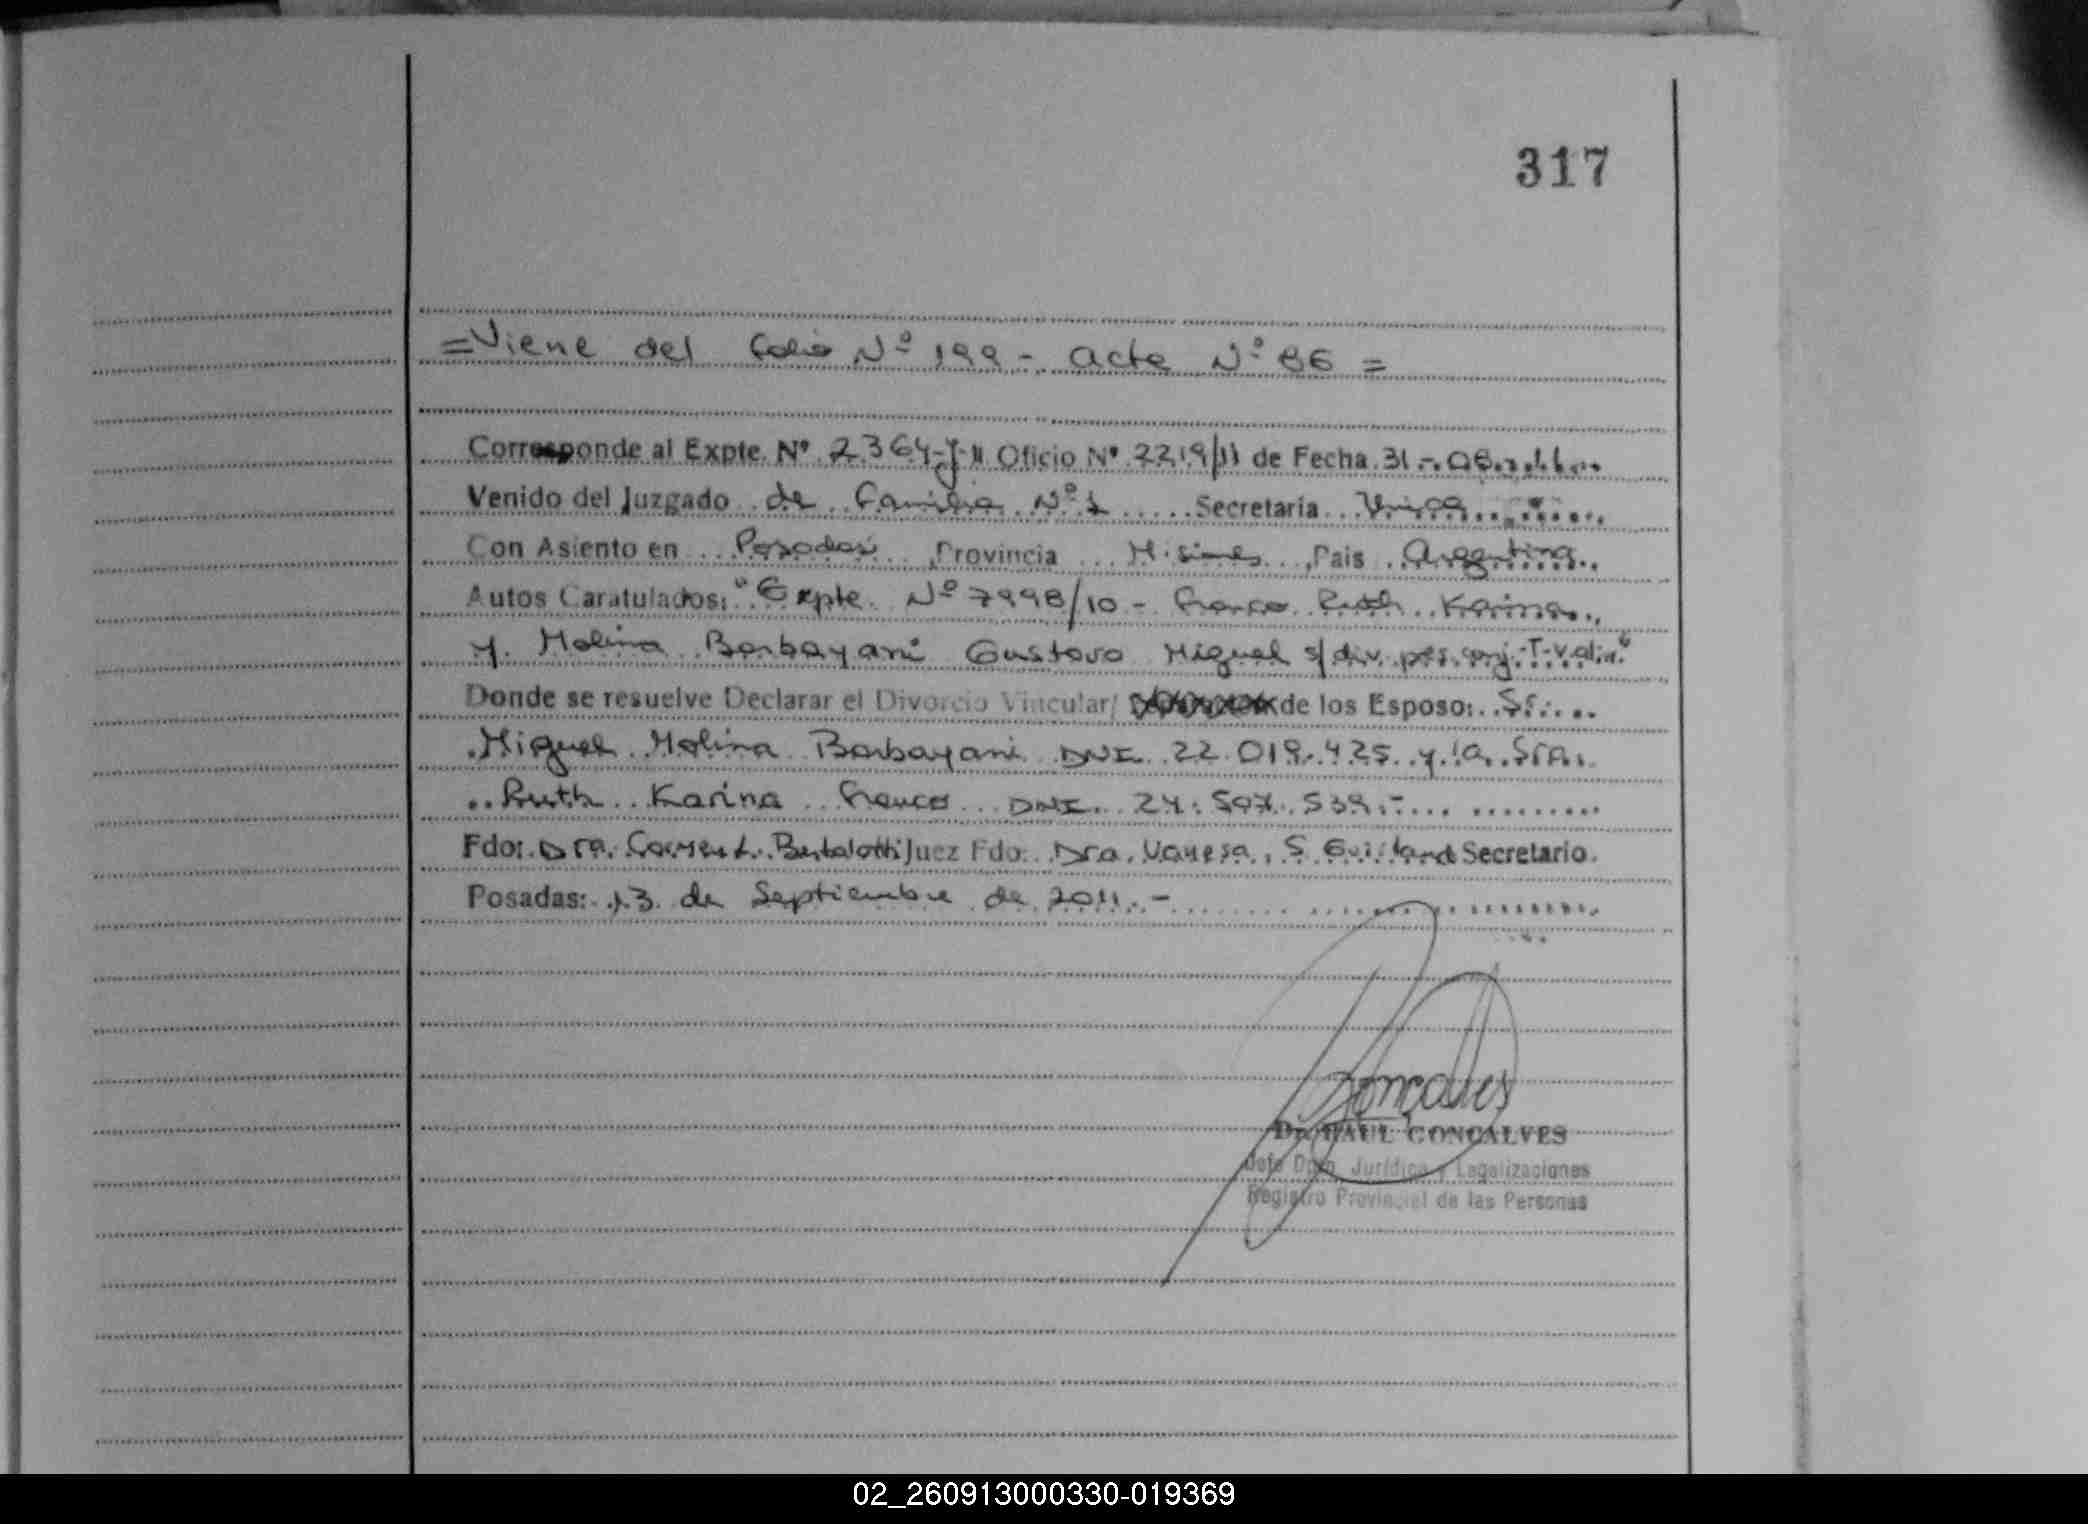 317
=Viene del folio Nº 199 - acta Nº 86 =
Corresponde al Expte. Nº 2364-J-11 Oficio Nº 2219/11 de Fecha 31-08-11
Venido del Juzgado de Familia Nº 1 Secretaria Unica
Con Asiento en Posadas, Provincia Misiones, Pais Argentina
Autos Caratulados: "Expte. Nº 7998/10 - Franco Ruth Karina
y Molina Barbayani Gustavo Miguel s/ div. pres. conj.
Donde se resuelve Declarar el Divorcio Vincular/ de los Esposo: Sr.
Miguel Molina Barbayani DNI 22.019.425 y la Sra.
Ruth Karina Franco DNI. 24.507.539.-
Fdo: Dra. Carmen L. Bertolotti Juez Fdo: Dra. Vanesa S. Secretario.
Posadas: 13 de Septiembre de 2011.-
Goncalves
Dr. RAUL GONCALVES
Jefe Dpto. Jurídico y Legalizaciones
Registro Provincial de las Personas
02_260913000330-019369